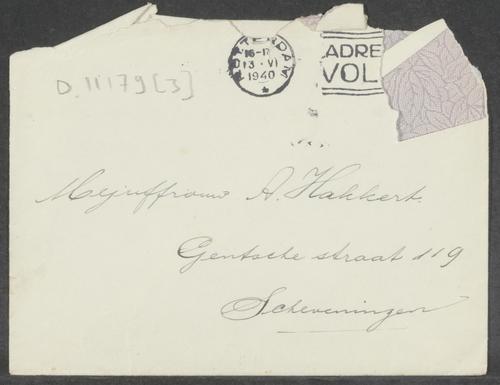 16-17
13 VI
1940
ADRE
VOL
D.11179[3]
Mejuffrouw A. Hakkert.
Gentsche straat 119
Scheveningen